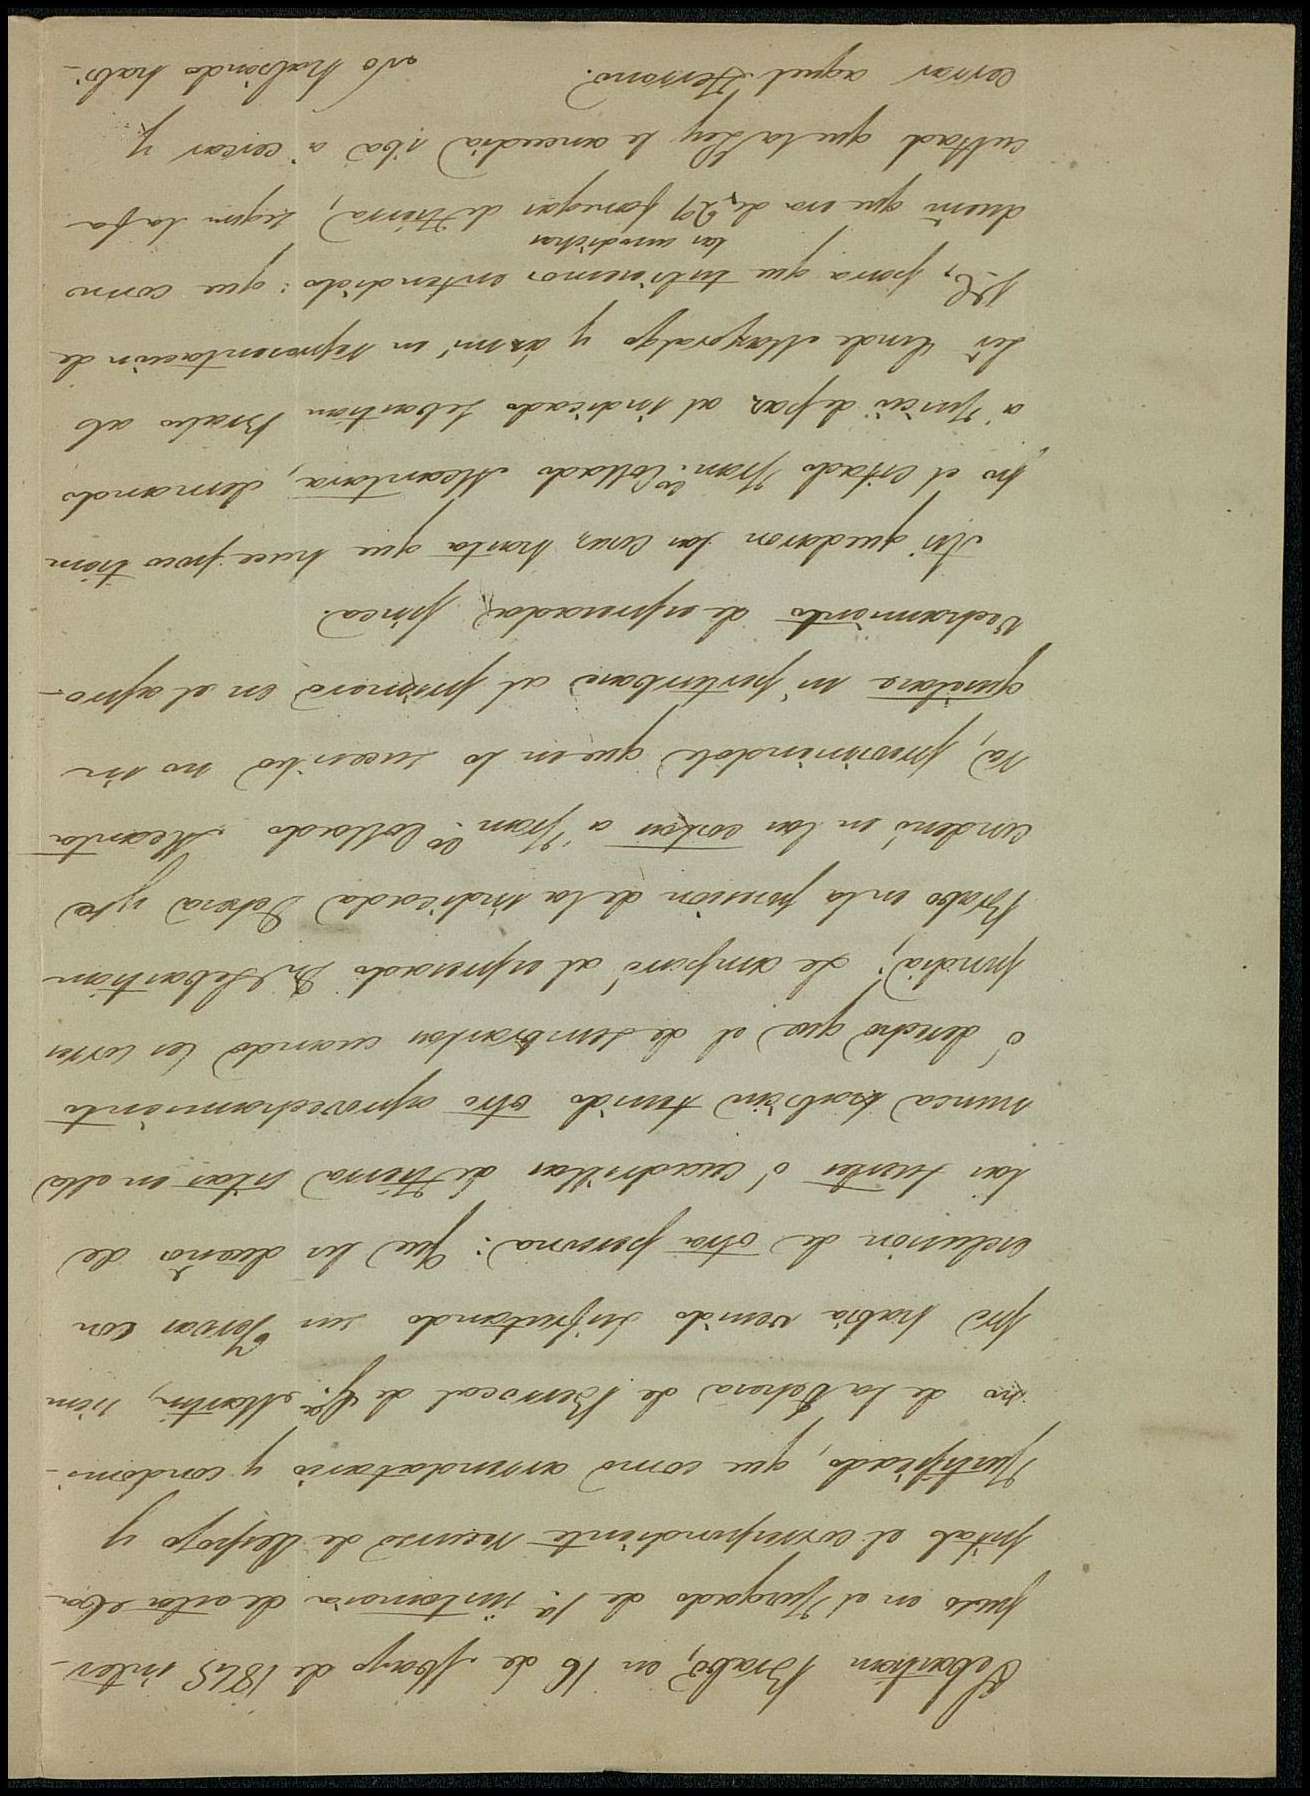 Sebastian Brabo, en 16 de Mayo de 1845 inter-
puso en el Juzgado de 1ª instancia de esta Ca-
pital el correspondiente recurso de despojo y
Justificado, que como arrendatario y condomi-
no de la Dehesa de Berrocal de Sn. Martin, siem
pre habia venido disfrutando sus Yervas con
esclusion de otra persona: Que los dueños de
las suertes ó cuadrillas de tierra sitas en ella
nunca habian tenido otro aprovechamiento
ó derecho que el de sembrarlas cuando les corres
pondia; se amparó al espresado Dn. Sebastian
Brabo en la posesion de la indicada Dehesa y se
condenó en las costas a Franco. Collado Meanta
ra, previniendole que en lo sucesibo no in
quietara ni perturbara al primero en el apro-
vechamiento de espresada finca.
Asi quedaron las cosas, hasta que hace poco tiem
po el citado Franco. Collado Meantara, demandó
a Juicio de paz al indicado Sebastian Brabo al
Sr. Conde Mayoralgo y á mi en representacion de
V.E., para que tubiesemos entendido: que como
dueño que era de las susodichas 27 fanegas de tierra, segun la fa
cultad que la Ley le concedia iba á cercar y
cerrar aquel terreno. No habiendo habi-